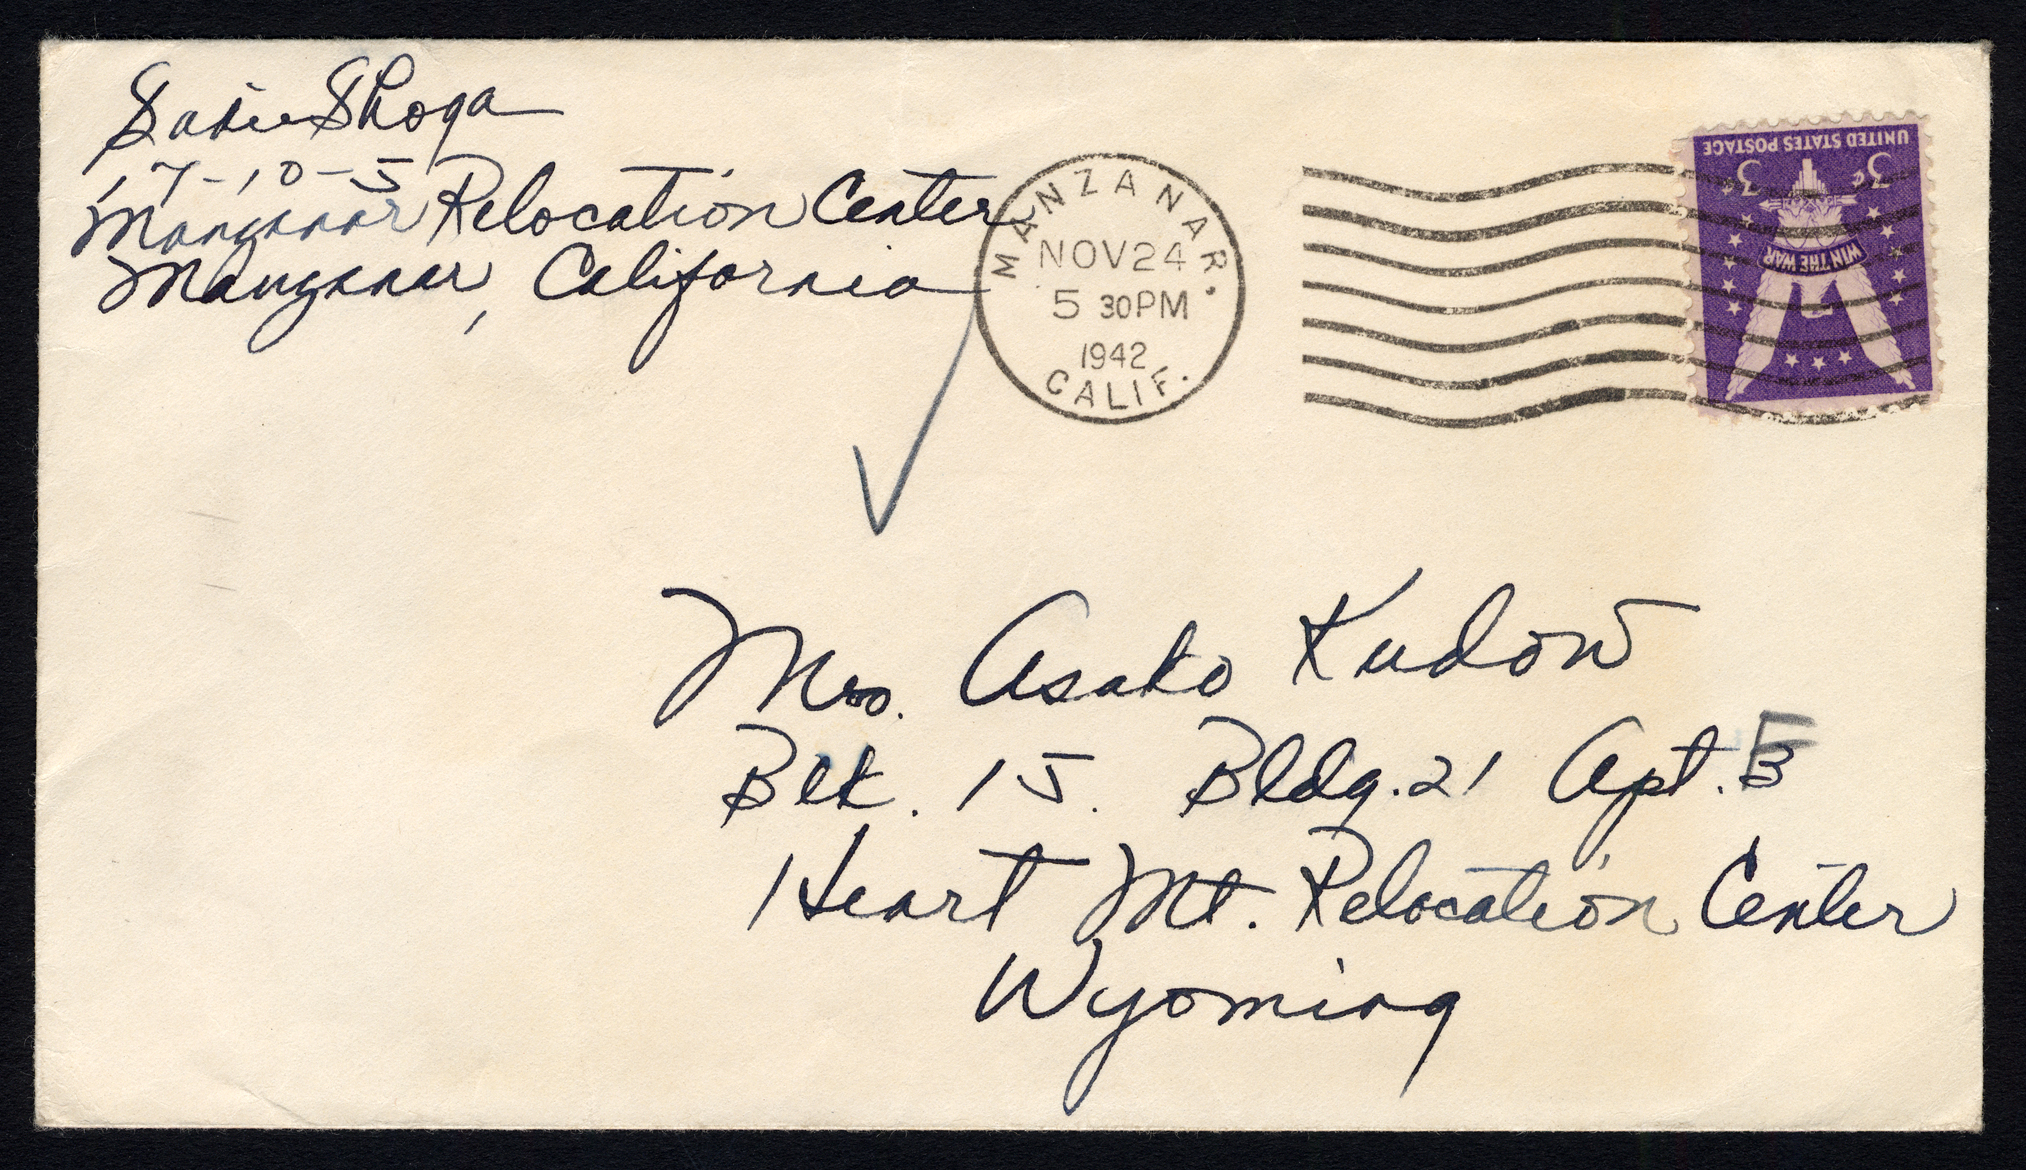 Sakie Shoga
17-10-5
Manzanar Relocation Center
Manzanar, California
MANZANAR.
NOV 24
5 30 PM
1942
CALIF.
UNITED STATES POSTAGE
3¢ 3¢
WIN THE WAR
Mrs. Asako Kudow
Blk. 15. Bldg. 21 Apt. E
Heart Mt. Relocation Center
Wyoming